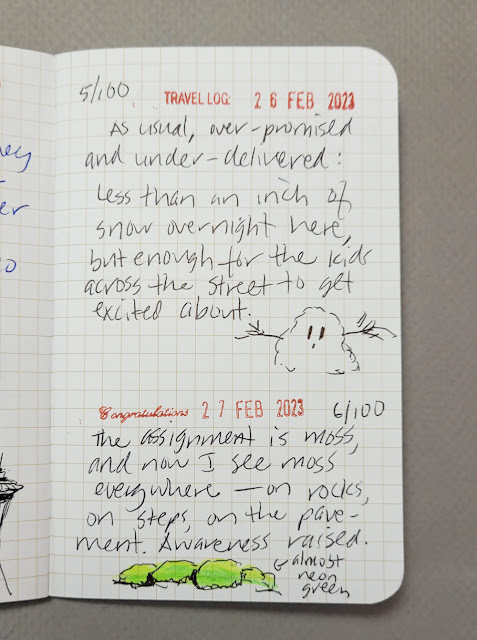 5/100
TRAVEL LOG: 26 FEB 2023
As usual, over-promised
and under-delivered:
Less than an inch of
snow overnight here,
but enough for the kids
across the street to get
excited about.
Congratulations 27 FEB 2023 6/100
The assignment is moss,
and now I see moss
everywhere — on rocks,
on steps, on the pave-
ment. Awareness raised.
almost
neon
green